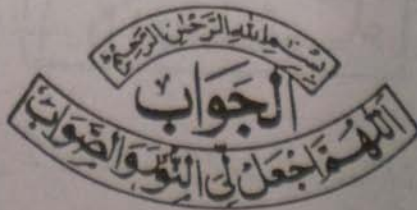 بِسْمِ اللهِ الرَّحْمٰنِ الرَّحِيْمِ
اَلْجَوَابُ
اَللّٰهُمَّ اجْعَلْ لِّيَ النُّوْرَ وَالصَّوَابَ